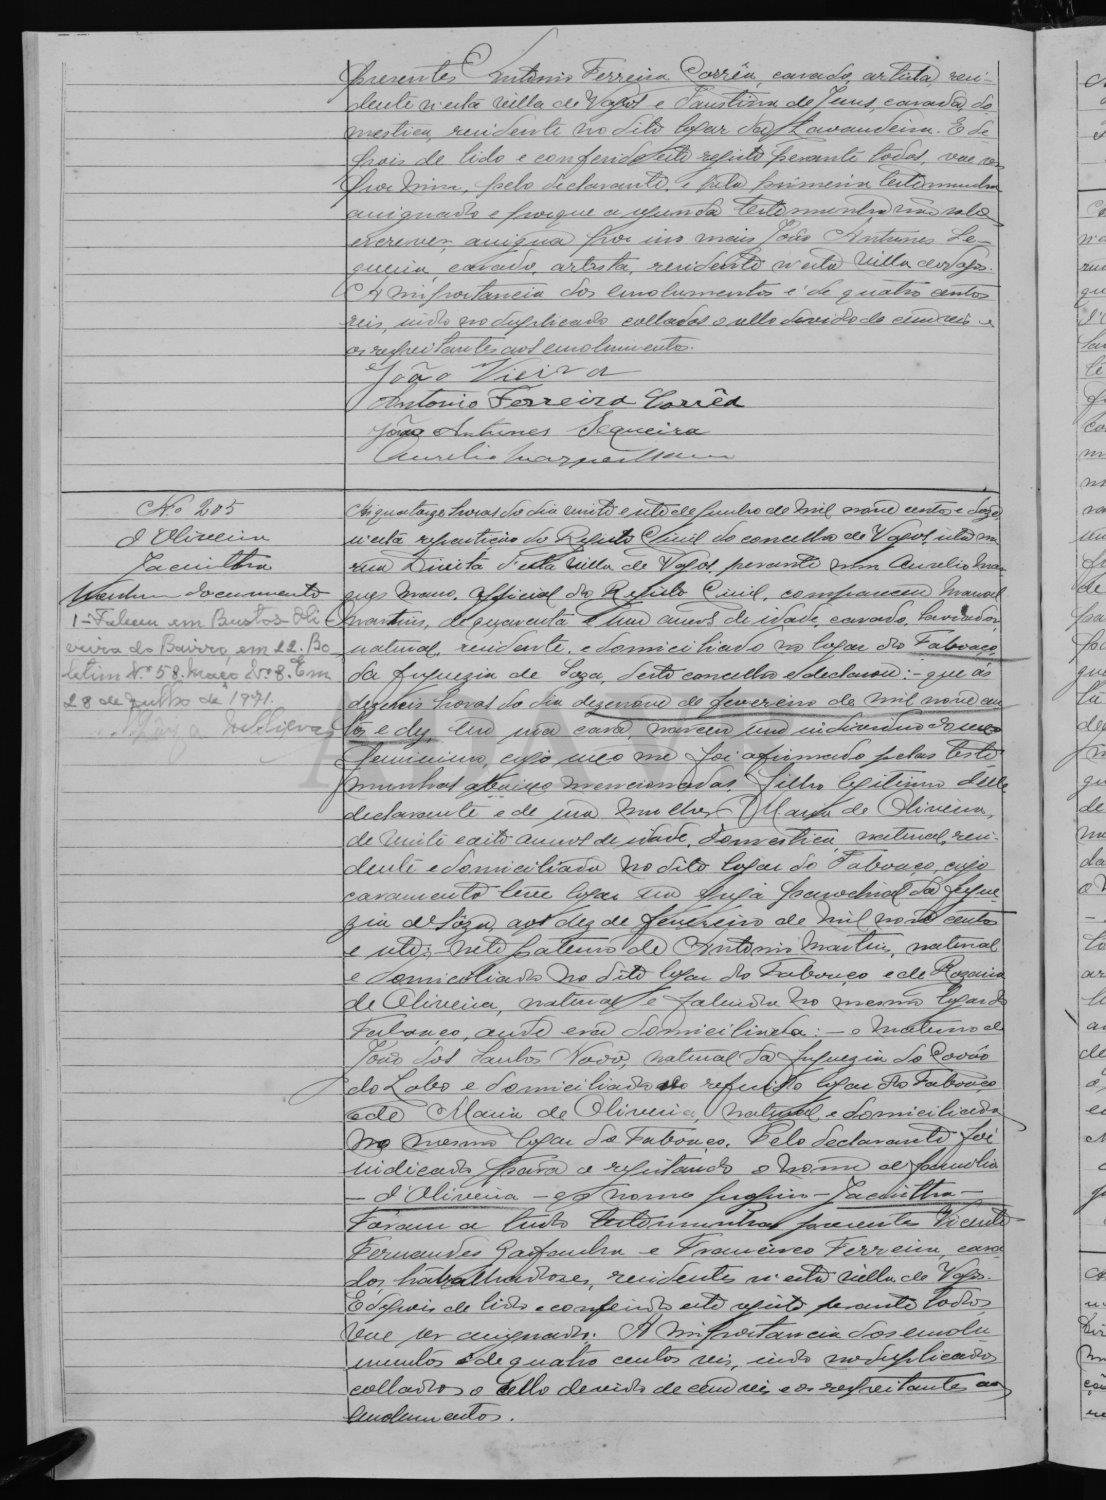 presentes Antonio Ferreira Corrêa, casado, artista, resi-
dente n'esta villa de Vagos e Faustina de Jesus, casada, do-
mestica, residente no dito logar da Lavandeira. E de-
pois de lido e conferido este registo perante todos, vae ser
por mim, pelo declarante, e pela primeira testemunha
assignado e porque a segunda testemunha não sabe
escrever, assigna por isso mais João Antunes Se-
queira, casado, artista, residente n'esta villa de Vagos.
A importancia dos emolumentos é de quatro centos
reis, indo no duplicado collados o sello devido de cem reis e
os respeitantes aos emolumentos.
João Vieira
Antonio Ferreira Corrêa
João Antunes Sequeira
Aurelio Marques Mano
N.º 205
d'Oliveira
Jacintha
Nenhum documento
1-Faleceu em Bustos-Oli-
veira do Bairro, em 22. Bo-
letim Nº 58. Maço Nº 8. Em
28 de Julho de 1971.
Silva
Ás quatorze horas do dia vinte e oito de Junho de mil nove centos e doze,
n'esta repartição do Registo Civil do concelho de Vagos, sita na
rua Direita d'esta villa de Vagos, perante mim Aurelio Mar-
ques Mano, official do Registo Civil, compareceu Manoel
Martins, de quarenta e um annos de idade, casado, lavrador,
natural, residente, e domiciliado no logar do Fabouço,
da freguezia de Soza, deste concelho e declarou:- que ás
dezeseis horas do dia dezenove de fevereiro de mil nove cen-
tos e dez, em sua casa, nasceu um individuo do sexo
feminino, cujo sexo me foi afirmado pelas teste-
munhas abaixo mencionadas. filho legitimo delle
declarante e de sua mulher Maria de Oliveira,
de vinte e oito annos de idade, domestica, natural, resi-
dente e domiciliada no dito logar do Fabouço, cujo
casamento teve logar na egreja parochial da fregue-
zia de Soza, aos dez de fevereiro de mil nove centos
e oito;- neto paterno de Antonio Martins, natural
e domiciliado no dito logar do Fabouço e de Rozaria
de Oliveira, natural e falecida no mesmo logar do
Fabouço, aonde era domiciliada:- e materno de
João dos Santos Novo, natural da freguezia do Covão
do Lobo e domiciliado no referido logar do Fabouço
e de Maria de Oliveira, natural e domiciliada
no mesmo logar do Fabouço. Pelo declarante foi
indicado para a registanda o nome de familia
- d'Oliveira - e o nome proprio - Jacintha -
Foram a tudo testemunhas presentes Vicente
Fernandes e Francisco Ferreira, casa-
dos, trabalhadores, residentes n'esta villa de Vagos.
E depois de lido e conferido este registo perante todos,
vae ser assignado. A importancia dos emolu-
mentos é de quatro centos reis, indo no duplicado
collados o sello devido de cem reis e os respeitantes aos
emolumentos.